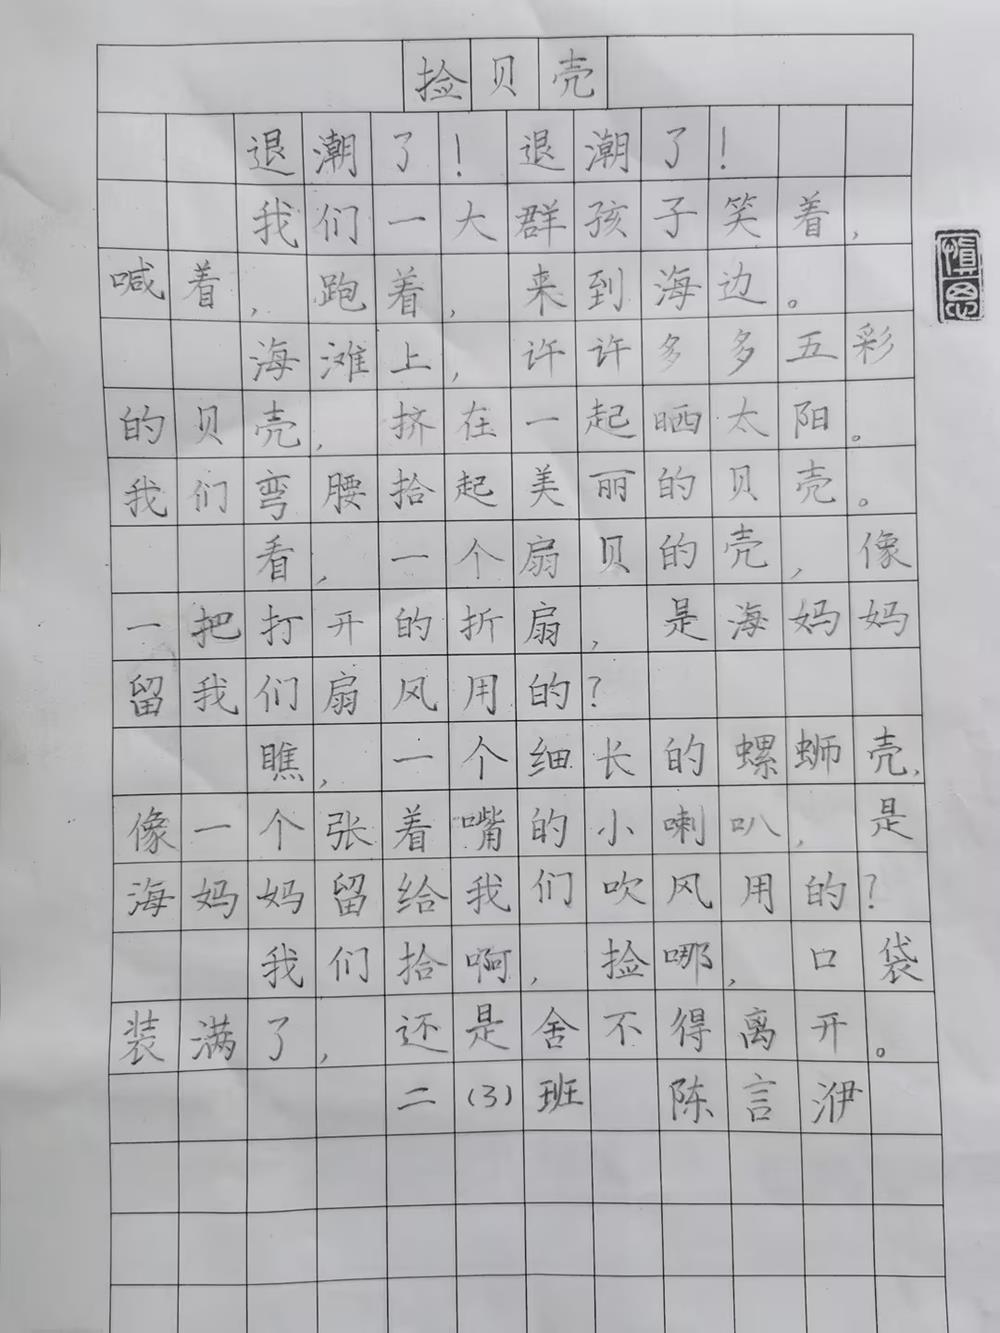 捡贝壳
退潮了！退潮了！
我们一大群孩子笑着，
喊着，跑着，来到海边。
海滩上，许许多多五彩
的贝壳，挤在一起晒太阳。
我们弯腰拾起美丽的贝壳。
看，一个扇贝的壳，像
一把打开的折扇，是海妈妈
留我们扇风用的？
瞧，一个细长的螺蛳壳，
像一个张着嘴的小喇叭，是
海妈妈留给我们吹风用的？
我们拾啊，捡哪，口袋
装满了，还是舍不得离开。
二(3)班 陈言洢
慎思